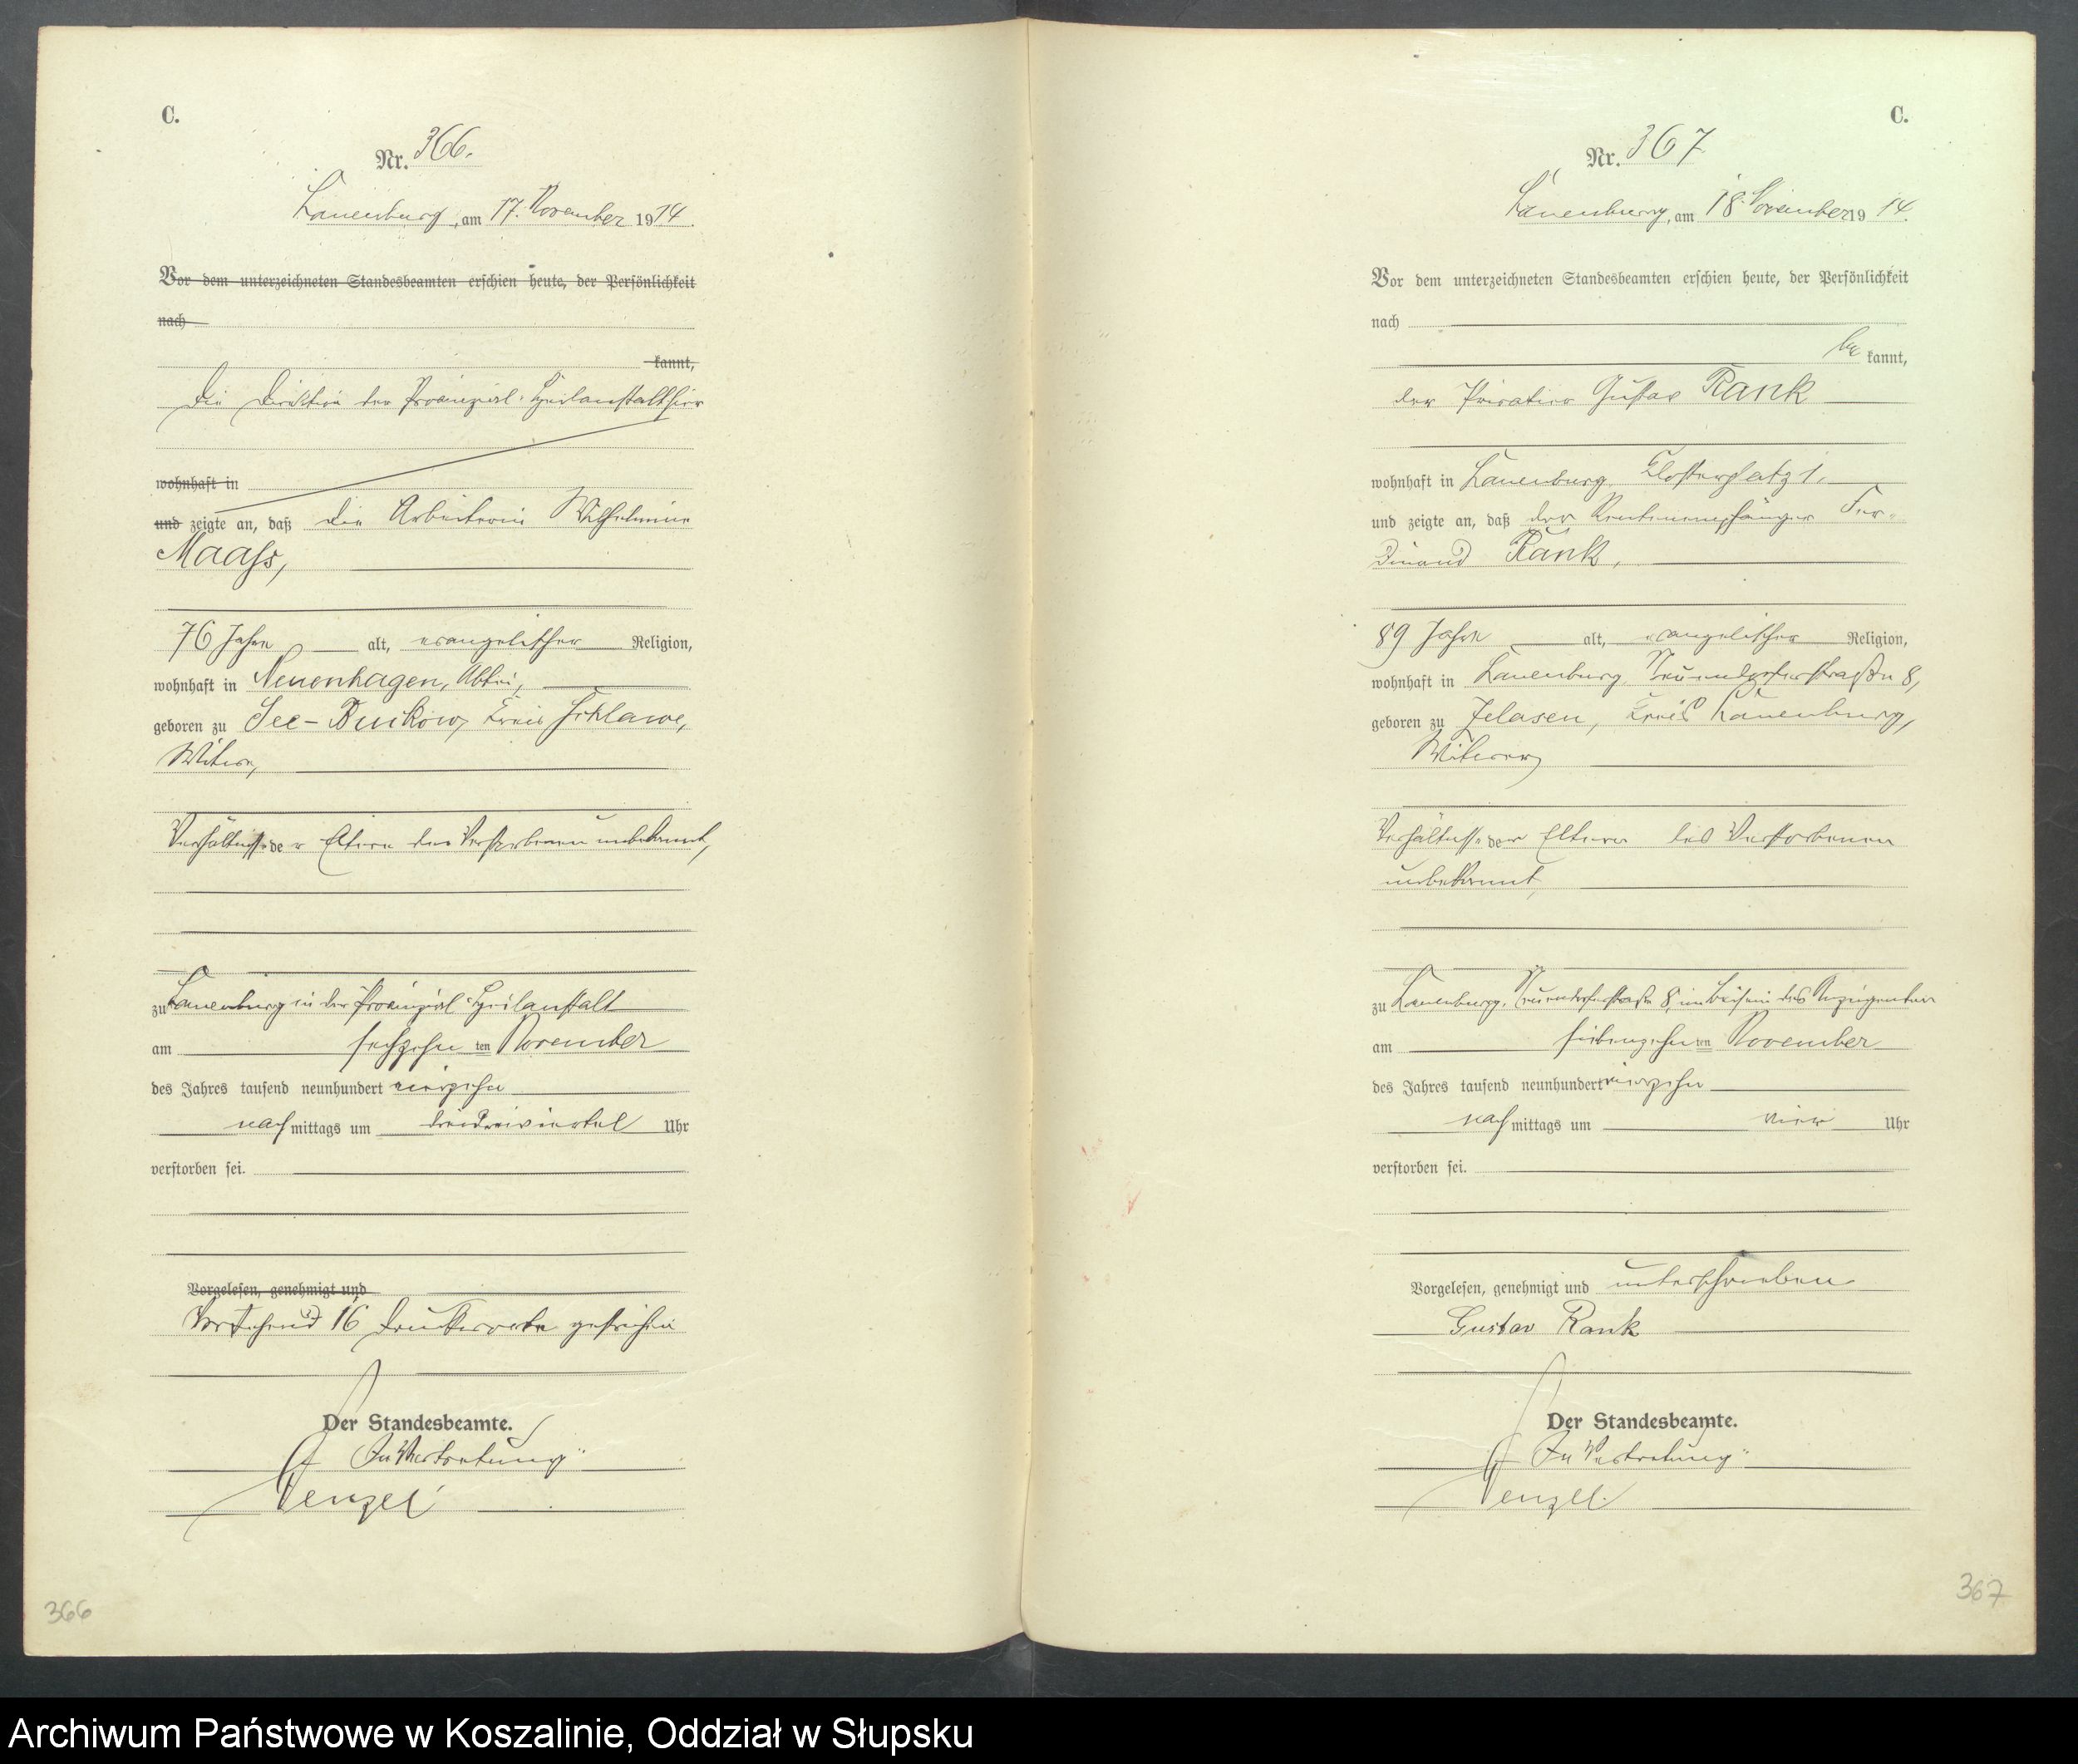 C.
Nr. 366.
Lauenburg, am 17. November 1914.
Vor dem unterzeichneten Standesbeamten erschien heute, der Persönlichkeit
nach
kannt,
Die Direktion der Provinzial-Heilanstalt hier
wohnhaft in
und zeigte an, daß die Arbeiterin Wilhelmine
Maass,
76 Jahre alt, evangelischer Religion,
wohnhaft in Neuenhagen, Abtei,
geboren zu See-Buckow, Kreis Schlawe,
Witwe,
Verhältnisse der Eltern der Verstorbenen unbekannt,
zu Lauenburg in der Provinzial-Heilanstalt
am sechzehnten November
des Jahres tausend neunhundert vierzehn
nachmittags um dreidreiviertel Uhr
verstorben sei.
Vorgelesen, genehmigt und
Vorstehend 16 Druckworte gestrichen
Der Standesbeamte.
In Vertretung
Wenzel
366
C.
Nr. 367
Lauenburg, am 18. November 1914.
Vor dem unterzeichneten Standesbeamten erschien heute, der Persönlichkeit
nach
bekannt,
der Privatier Gustav Rank
wohnhaft in Lauenburg Klosterplatz 1,
und zeigte an, daß der Rentenempfänger Fer-
dinand Rank,
89 Jahre alt, evangelischer Religion,
wohnhaft in Lauenburg, Neuendorferstraße 8,
geboren zu Jelasen, Kreis Lauenburg,
Witwer,
Verhältnisse der Eltern des Verstorbenen
unbekannt,
zu Lauenburg, Neuendorferstraße 8, im Beisein des Anzeigenden
am siebenzehnten November
des Jahres tausend neunhundert vierzehn
nachmittags um vier Uhr
verstorben sei.
Vorgelesen, genehmigt und unterschrieben
Gustav Rank
Der Standesbeamte.
In Vertretung
Wenzel.
367
Archiwum Państwowe w Koszalinie, Oddział w Słupsku